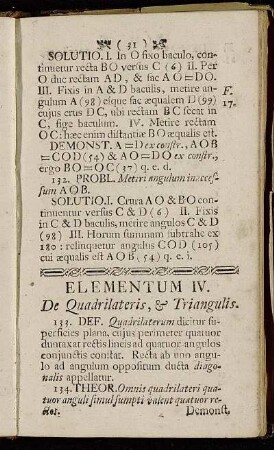 ( 31 )
SOLUTIO. I. In O fixo baculo, con-
tinuetur recta BO versus C (6) II. Per
O duc rectam AD, & fac AO=DO.
III. Fixis in A & D baculis, metire an-
gulum A (98) eique fac æqualem D (99)
cujus crus DC, ubi rectum BC secat in
C, fige baculum. IV. Metire rectam
OC: hæc enim distantiæ BO æqualis est.
F.
17.
DEMONST. A=D ex constr., AOB
=COD (54) & AO=DO ex constr.,
ergo BO=OC (37) q. e. d.
132. PROBL. Metiri angulum inacces-
sum AOB.
SOLUTIO. I. Crura AO & BO con-
tinuentur versus C & D (6) II. Fixis
in C & D baculis, metire angulos C & D
(98) III. Horum summam subtrahe ex
180: relinquetur angulus COD (105)
cui æqualis est AOB (54) q. e. i.
ELEMENTUM IV.
De Quadrilateris, & Triangulis.
133. DEF. Quadrilaterum dicitur su-
perficies plana, cujus perimeter quatuor
duntaxat rectis lineis ad quatuor angulos
conjunctis constat. Recta ab uno angu-
lo ad angulum oppositum ducta diago-
nalis appellatur.
134. THEOR. Omnis quadrilateri qua-
tuor anguli simul sumpti valent quatuor re-
ctos. Demonst.